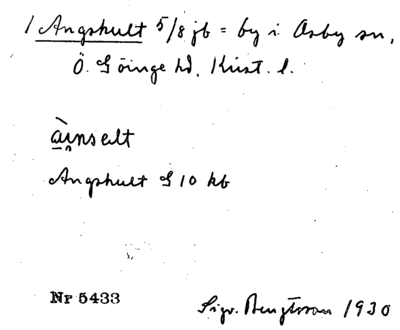 1 Angshult 5/8 jb = by i Osby sn,
Ö. Göinge hd. Krist. l.
àinselt
Angshult G 10 kb
Nr 5433
Sigv. Bengtsson 1930